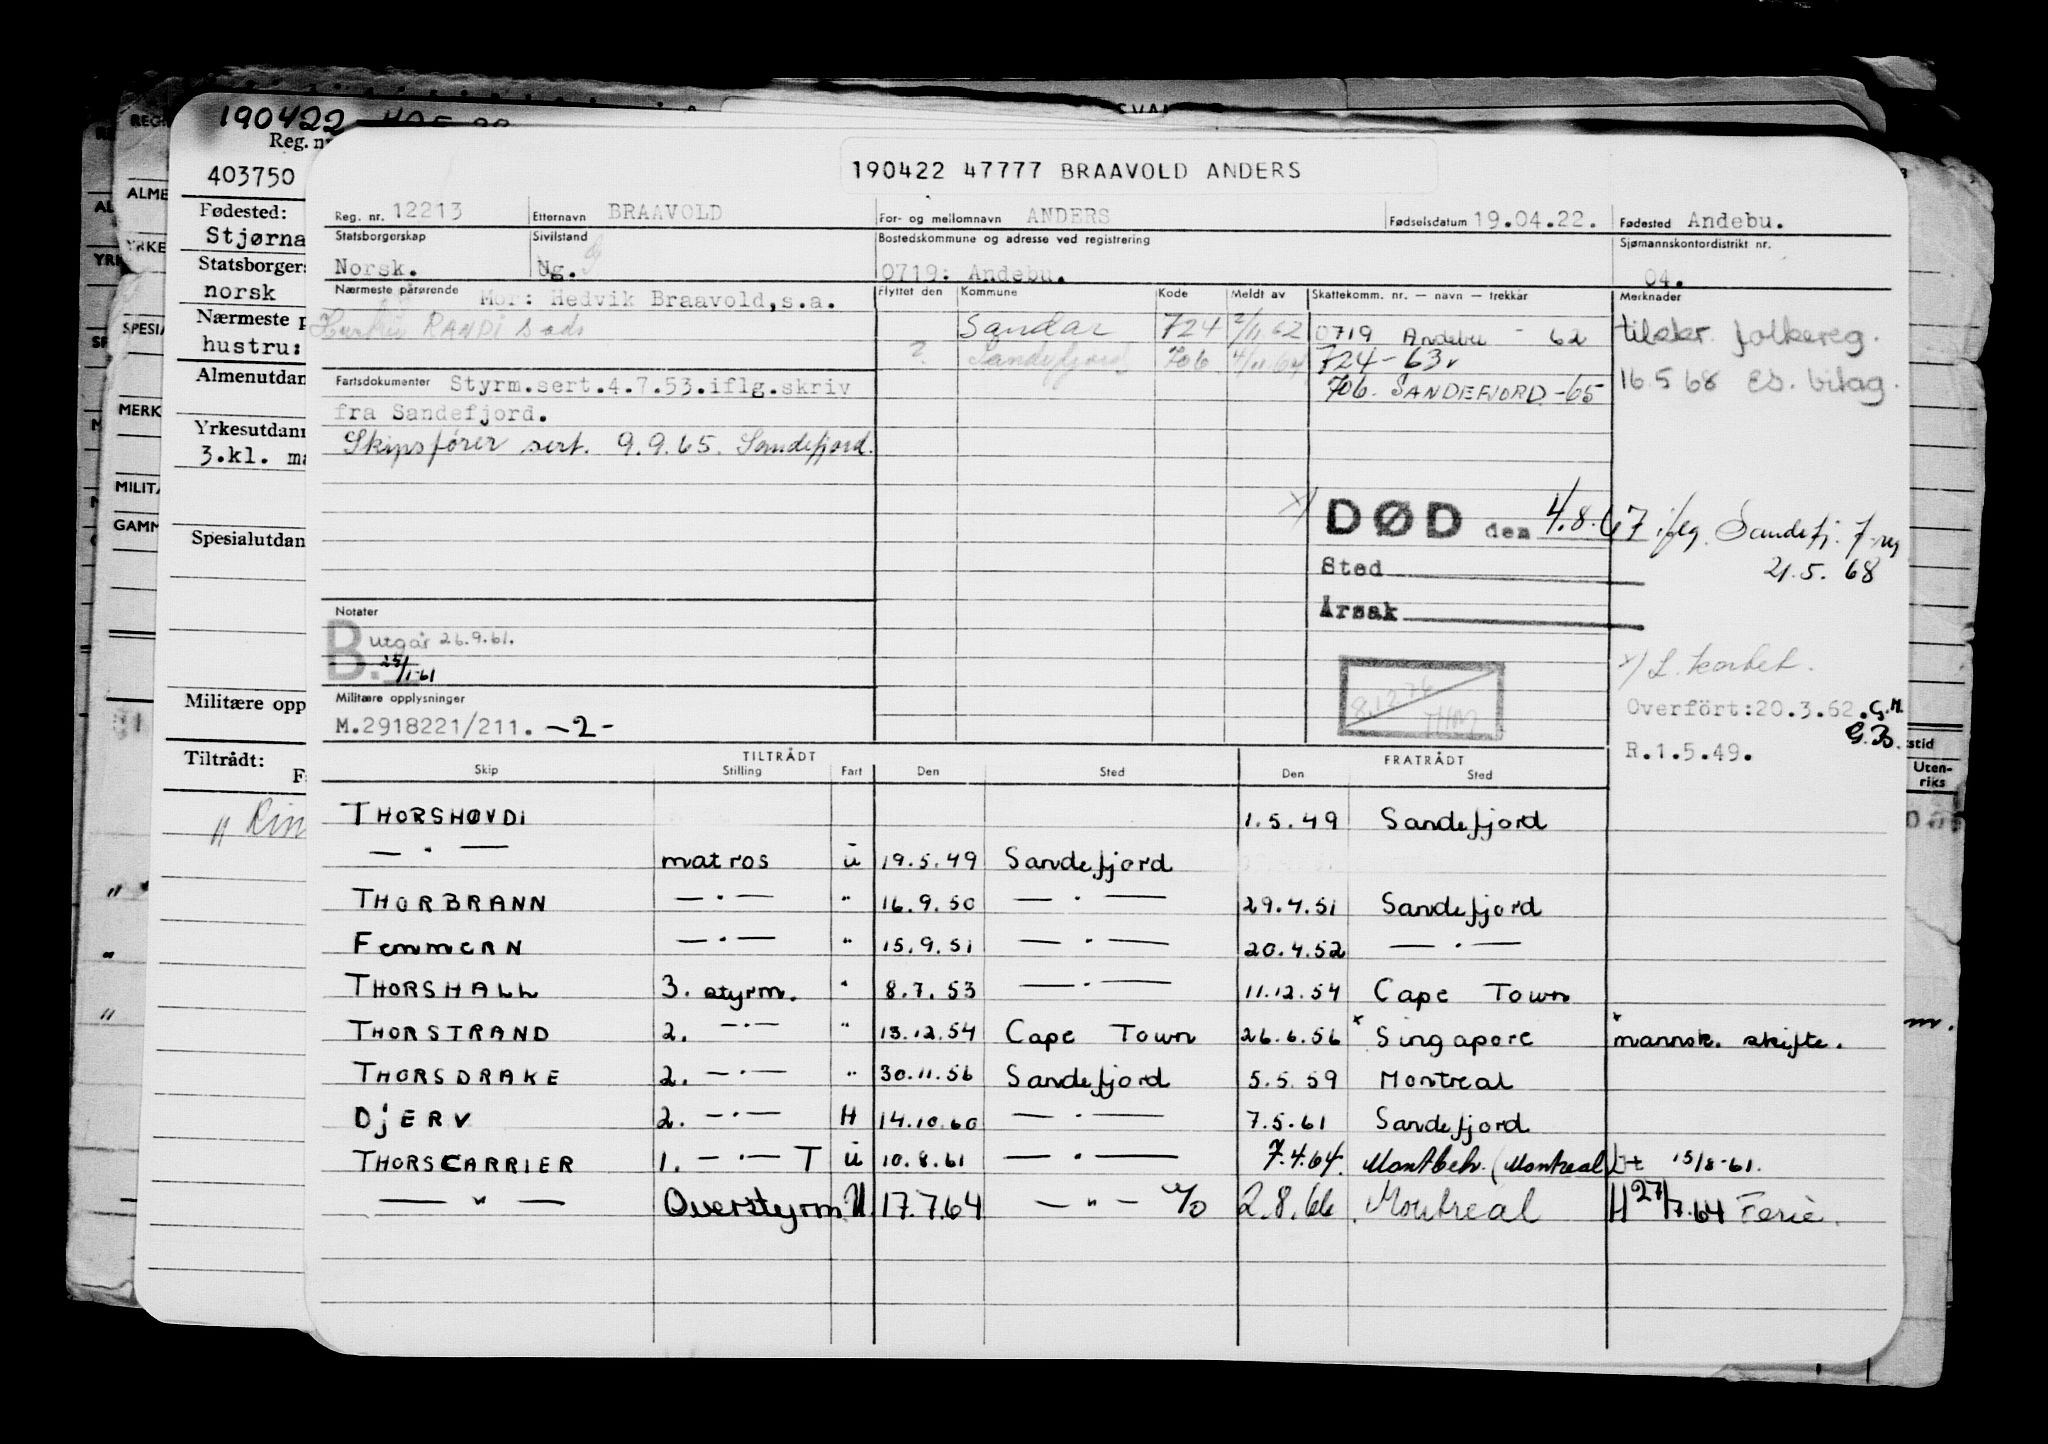 190422
Reg. nr
403750
Fødested:
Stjørna
Statsborgers
norsk
Nærmeste p
hustru:
Almenutdan
Yrkesutdann
3.kl. ma
Spesialutdan
Militære opp
Tiltrådt:
190422 47777 BRAAVOLD ANDERS
Reg. nr. 12213 Etternavn BRAAVOLD For- og mellomnavn ANDERS Fødselsdatum 19.04.22. Fødested Andebu.
Statsborgerskap Sivilstand Bostedskommune og adresse ved registrering Sjømannskontordistrikt nr.
Norsk. Ug. 0719: Andebu. 04.
Nærmeste pårørende Mor: Hedvik Braavold,s.a. Flyttet den Kommune Kode Meldt av Skattekomm. nr. — navn — trekkår Merknader
Hustru RANDI s ads Sandar 724 2/11.62 0719 Andebu - 62 tilskr. folkereg.
? Sandefjord 706 4/11.64 724 - 63 v 16.5 68 es. bilag.
Fartsdokumenter Styrm.sert.4.7.53.iflg.skriv 706. SANDEFJORD -65
fra Sandefjord.
Skipsfører sert. 9.9.65. Sandefjord.
x) DØD den 4.8.67 iflg. Sandefj. f-reg
Sted 21.5. 68
Årsak
Notater
B. utgår 26.9.61.
25/1-61
x) L.
8.12 76
THM
Overført:20.3.62. G.M.
G.B.
Militære opplysninger
M.2918221/211. -2-
R.1.5.49.
TILTRÅDT FRATRÅDT
Skip Stilling Fart Den Sted Den Sted
THORSHØVDI 1.5.49 Sandefjord
— " — matros u 19.5.49 Sandefjord
THORBRANN — " — " 16.9.50 — " — 29.4.51 Sandefjord
FEMMERN — " — " 15.9.51 — " — 20.4.52 — " —
THORSHALL 3. styrm. " 8.7.53 — " — 11.12.54 Cape Town
THORSTRAND 2. — " — " 13.12.54 Cape Town 26.6.56 x Singapore x mannsk. skifte.
THORSDRAKE 2. — " — " 30.11.56 Sandefjord 5.5.59 Montreal
DJERV 2. — " — H 14.10.60 — " — 7.5.61 Sandefjord
THORSCARRIER 1. — " — T u 10.8.61 — " — 7.4.64. Montbeh. (Montreal) Ut 15/8-61.
— " — Overstyrm U 17.7.64 — " — 2.8.66. Montreal H 27/7.64 Ferie.
stid
Uten-
riks